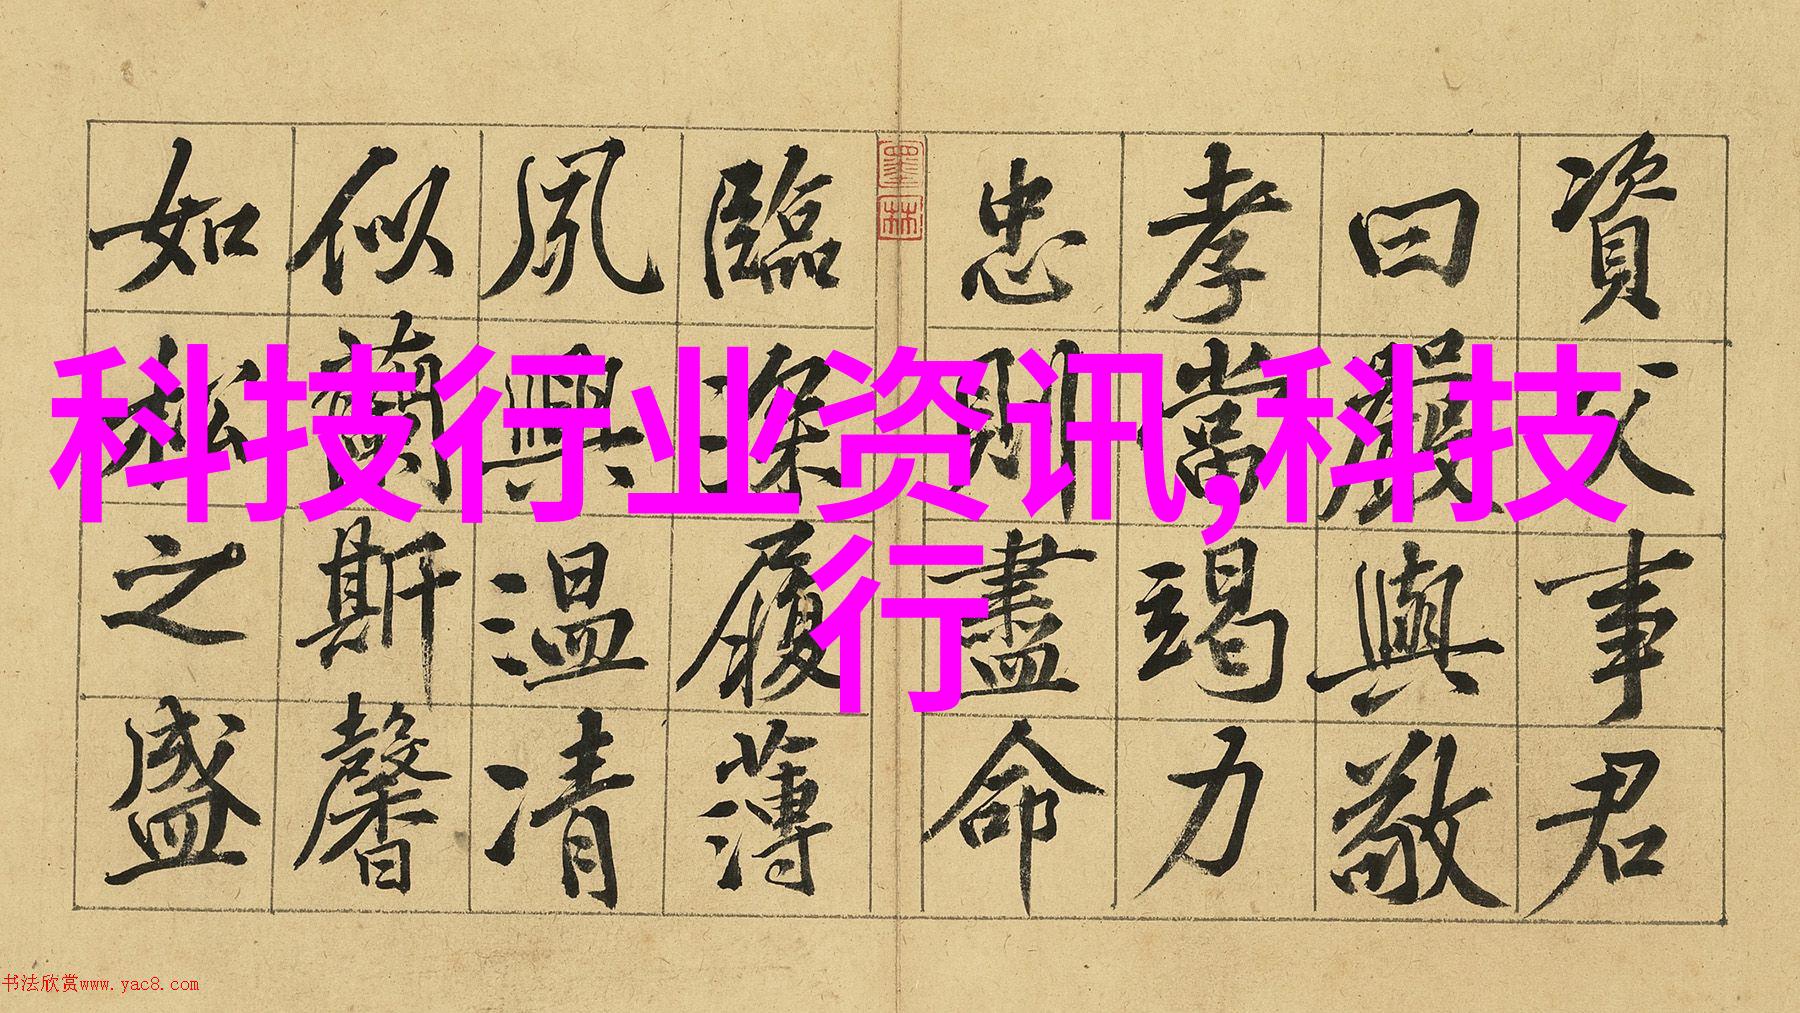 資父事君
曰嚴與敬
孝當竭力
忠則盡命
墨林
臨深履薄
夙興温凊
似蘭斯馨
如松之盛
科技行业资讯,科技
行
书法欣赏www.yac8.com